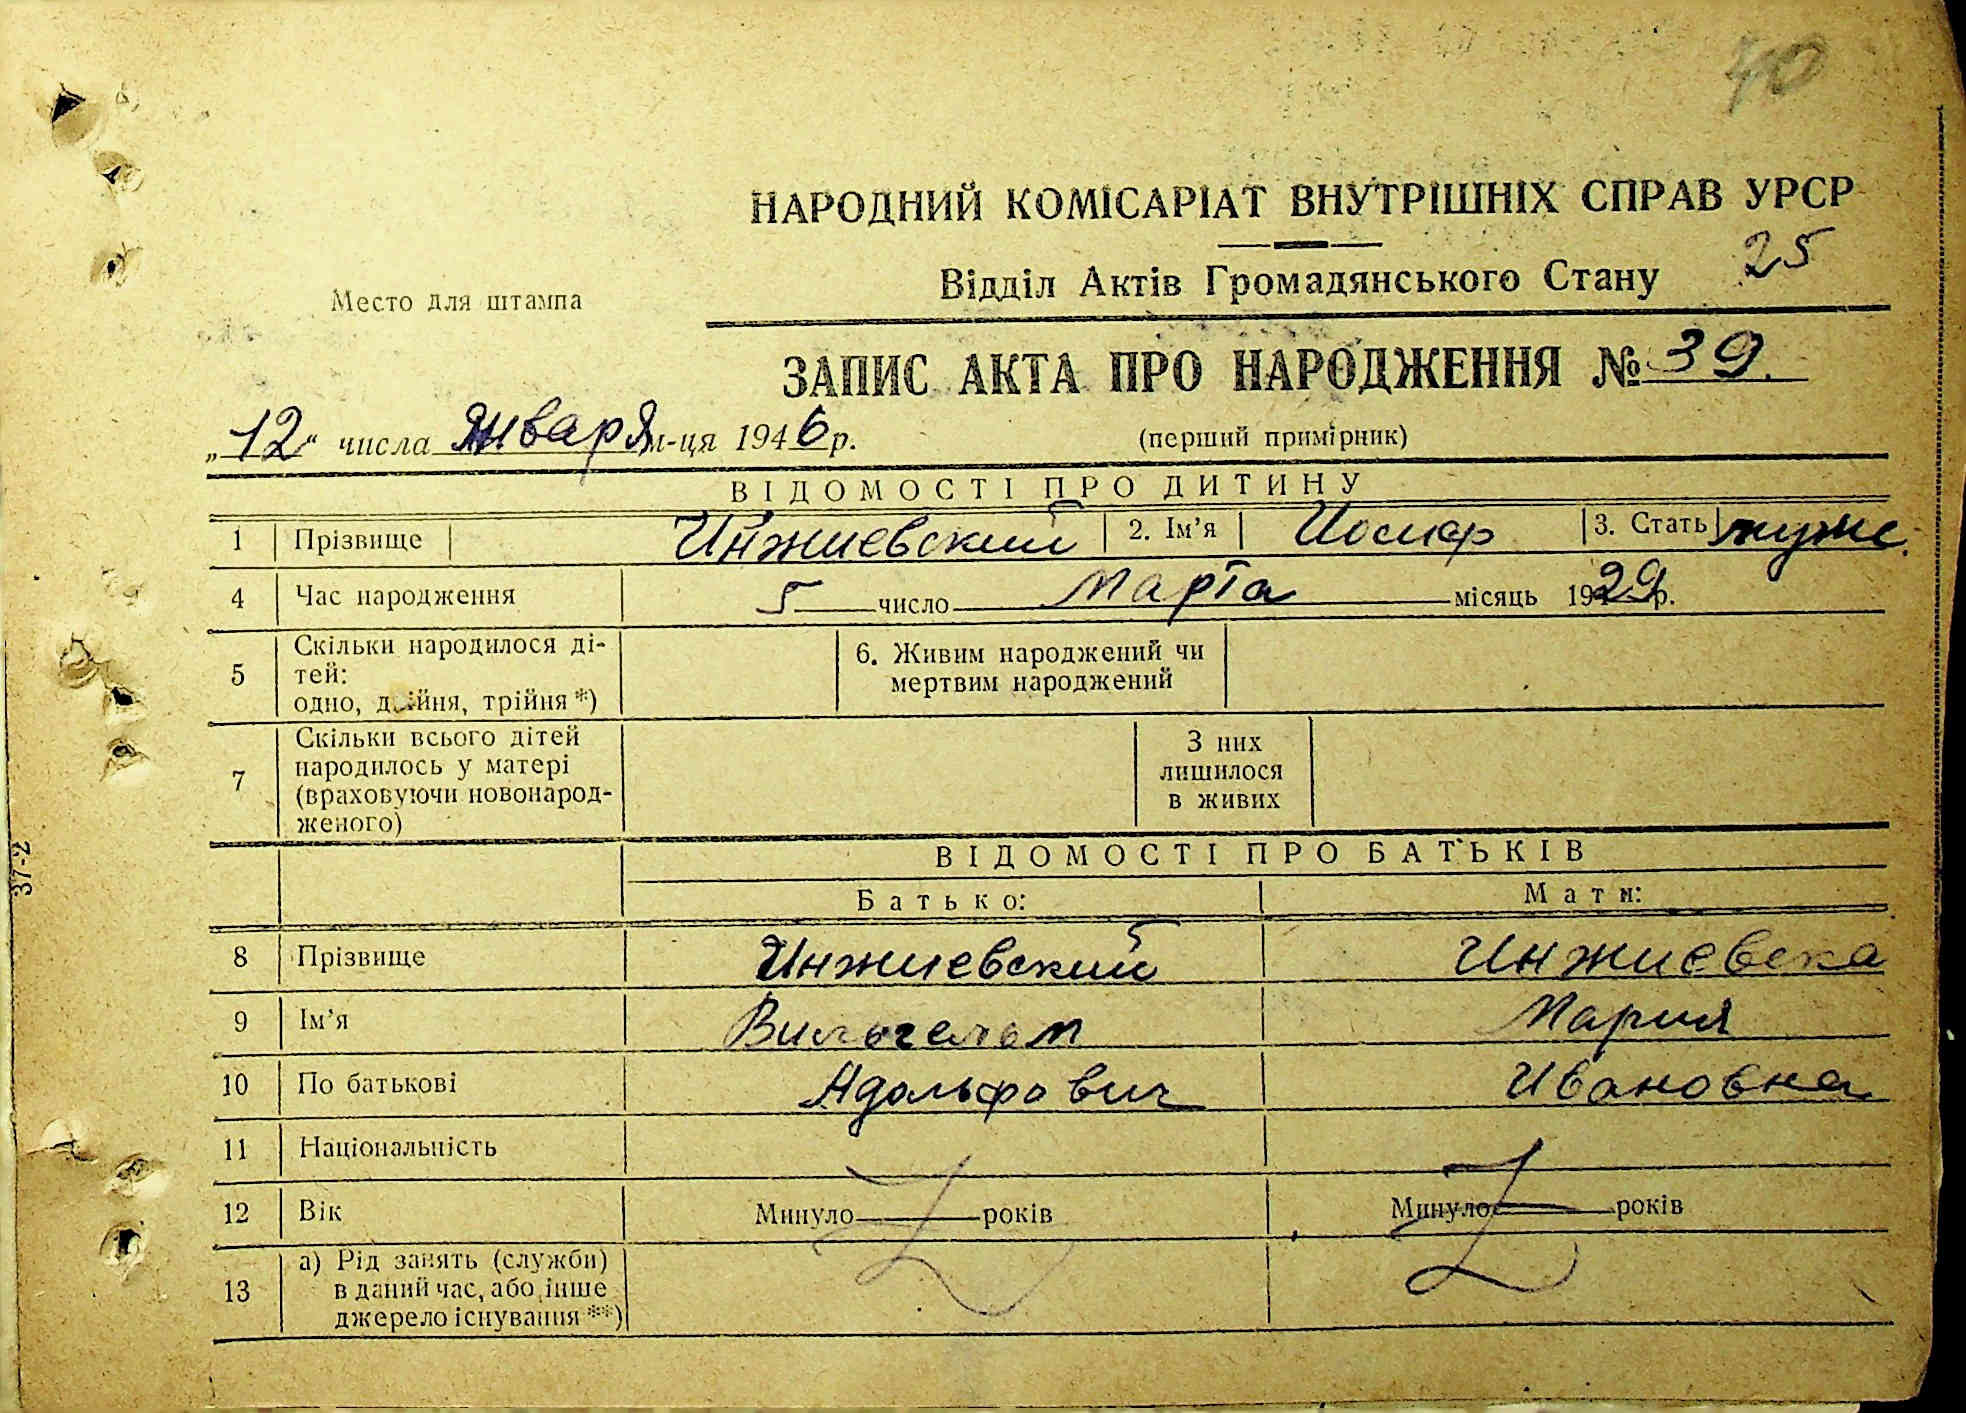 40
НАРОДНИЙ КОМІСАРІАТ ВНУТРІШНІХ СПРАВ УРСР
25
Відділ Актів Громадянського Стану
Место для штампа
ЗАПИС АКТА ПРО НАРОДЖЕННЯ № 39.
„12“ числа января м-ця 1946 р.
(перший примірник)
ВІДОМОСТІ ПРО ДИТИНУ
1 Прізвище Инжиевский 2. Ім’я Иосиф 3. Стать муж.
4 Час народження 5 число Марта місяць 1929 р.
5 Скільки народилося ді-
тей:
одно, двійня, трійня *)
6. Живим народжений чи
мертвим народжений
7 Скільки всього дітей
народилось у матері
(враховуючи новонарод-
женого)
З них
лишилося
в живих
ВІДОМОСТІ ПРО БАТЬКІВ
Батько: Мати:
8 Прізвище Инжиевский Инжиевска
9 Ім’я Вильгельм Мария
10 По батькові Адольфович Ивановна
11 Національність
12 Вік Минуло років Минуло років
13 а) Рід занять (служби)
в даний час, або інше
джерело існування **)
37-2